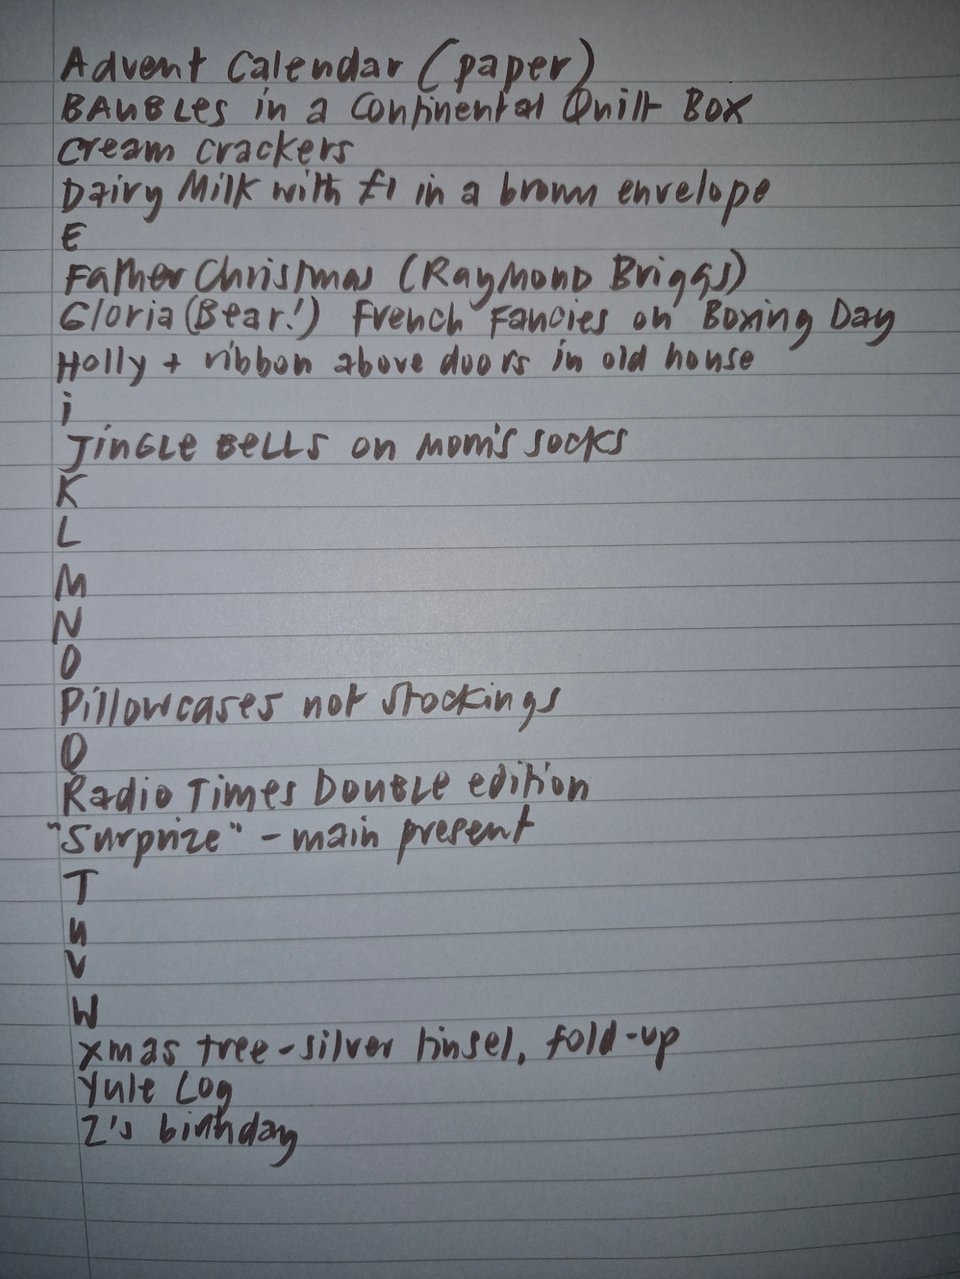 Advent Calendar (paper)
BAUBLes in a Continental Quilt Box
Cream crackers
Dairy Milk with £1 in a brown envelope
E
Father Christmas (Raymond Briggs)
Gloria (Bear!) French Fancies on Boxing Day
Holly + ribbon above doors in old house
i
JinGLe BeLLS on Mom's socks
K
L
M
N
O
Pillowcases not stockings
Q
Radio Times Double edition
"Surprize" - main present
T
u
V
W
Xmas tree - silver tinsel, fold-up
Yule Log
Z's birthday